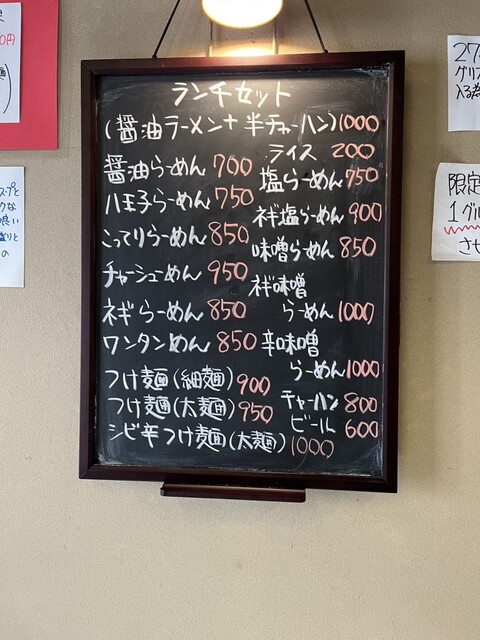 ランチセット
(醤油ラーメン+半チャーハン)1000
ライス 200
醤油らーめん 700
八王子らーめん 750
こってりらーめん 850
チャーシューめん 950
ネギらーめん 850
ワンタンめん 850
つけ麺(細麺) 900
つけ麺(太麺) 950
シビ辛つけ麺(太麺) 1000
塩らーめん 750
ネギ塩らーめん 900
味噌らーめん 850
ネギ味噌
らーめん 1000
辛味噌
らーめん 1000
チャーハン 800
ビール 600
限定
1グル
させ